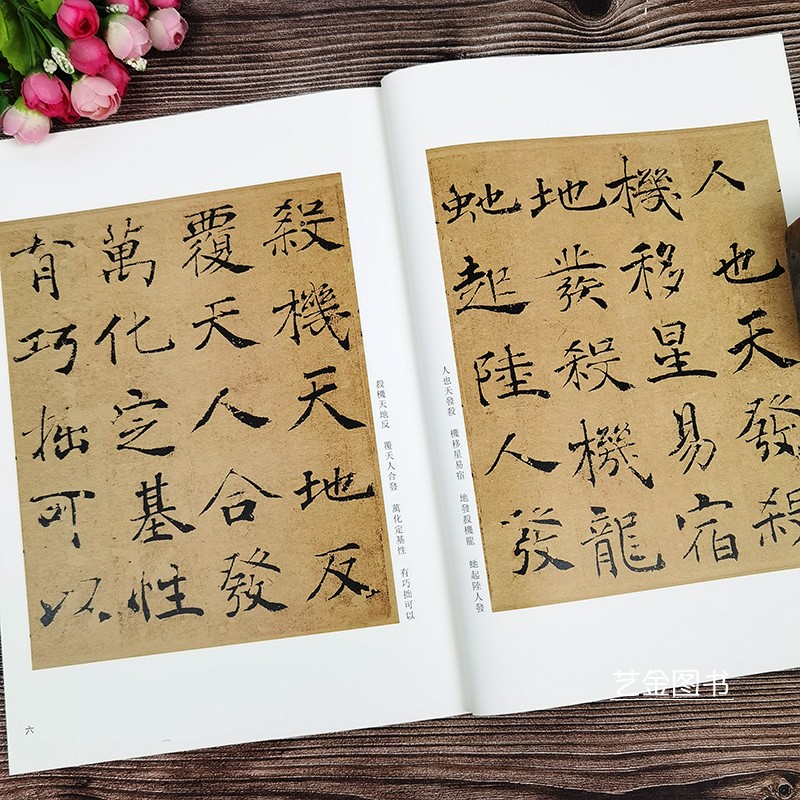 人也天發殺
機移星易宿
地發殺機龍
虵起陸人發
人也天發殺 機移星易宿 地發殺機龍 虵起陸人發
殺機天地反
覆天人合發
萬化定基性
有巧拙可以
殺機天地反 覆天人合發 萬化定基性 有巧拙可以
六
艺金图书